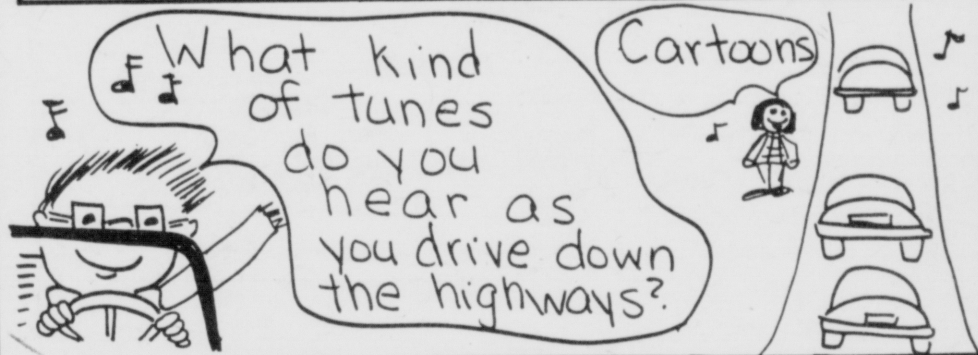 What kind
of tunes
do you
hear as
you drive down
the highways?
Cartoons